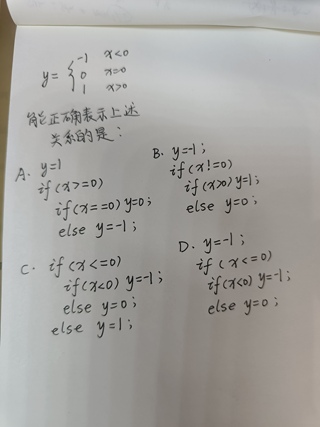 y= { -1 x<0
0 x=0
1 x>0
能正确表示上述
关系的是:
A. y=1
if(x>=0)
if(x==0) y=0;
else y=-1;
B. y=-1;
if(x!=0)
if(x>0) y=1;
else y=0;
C. if(x<=0)
if(x<0) y=-1;
else y=0;
else y=1;
D. y=-1;
if (x<=0)
if(x<0) y=-1;
else y=0;